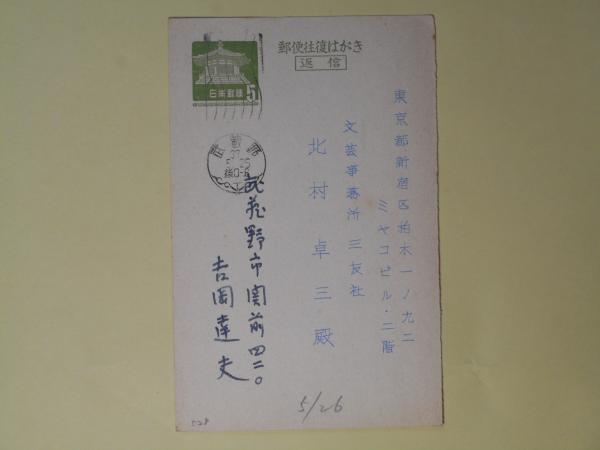 郵便往復はがき
返信
日本郵便
5
東京都新宿区柏木一ノ九二
ミヤコビル・二階
文芸事務所 三友社
北村卓三殿
武蔵野市関前四二〇
吉岡達夫
5/26
528